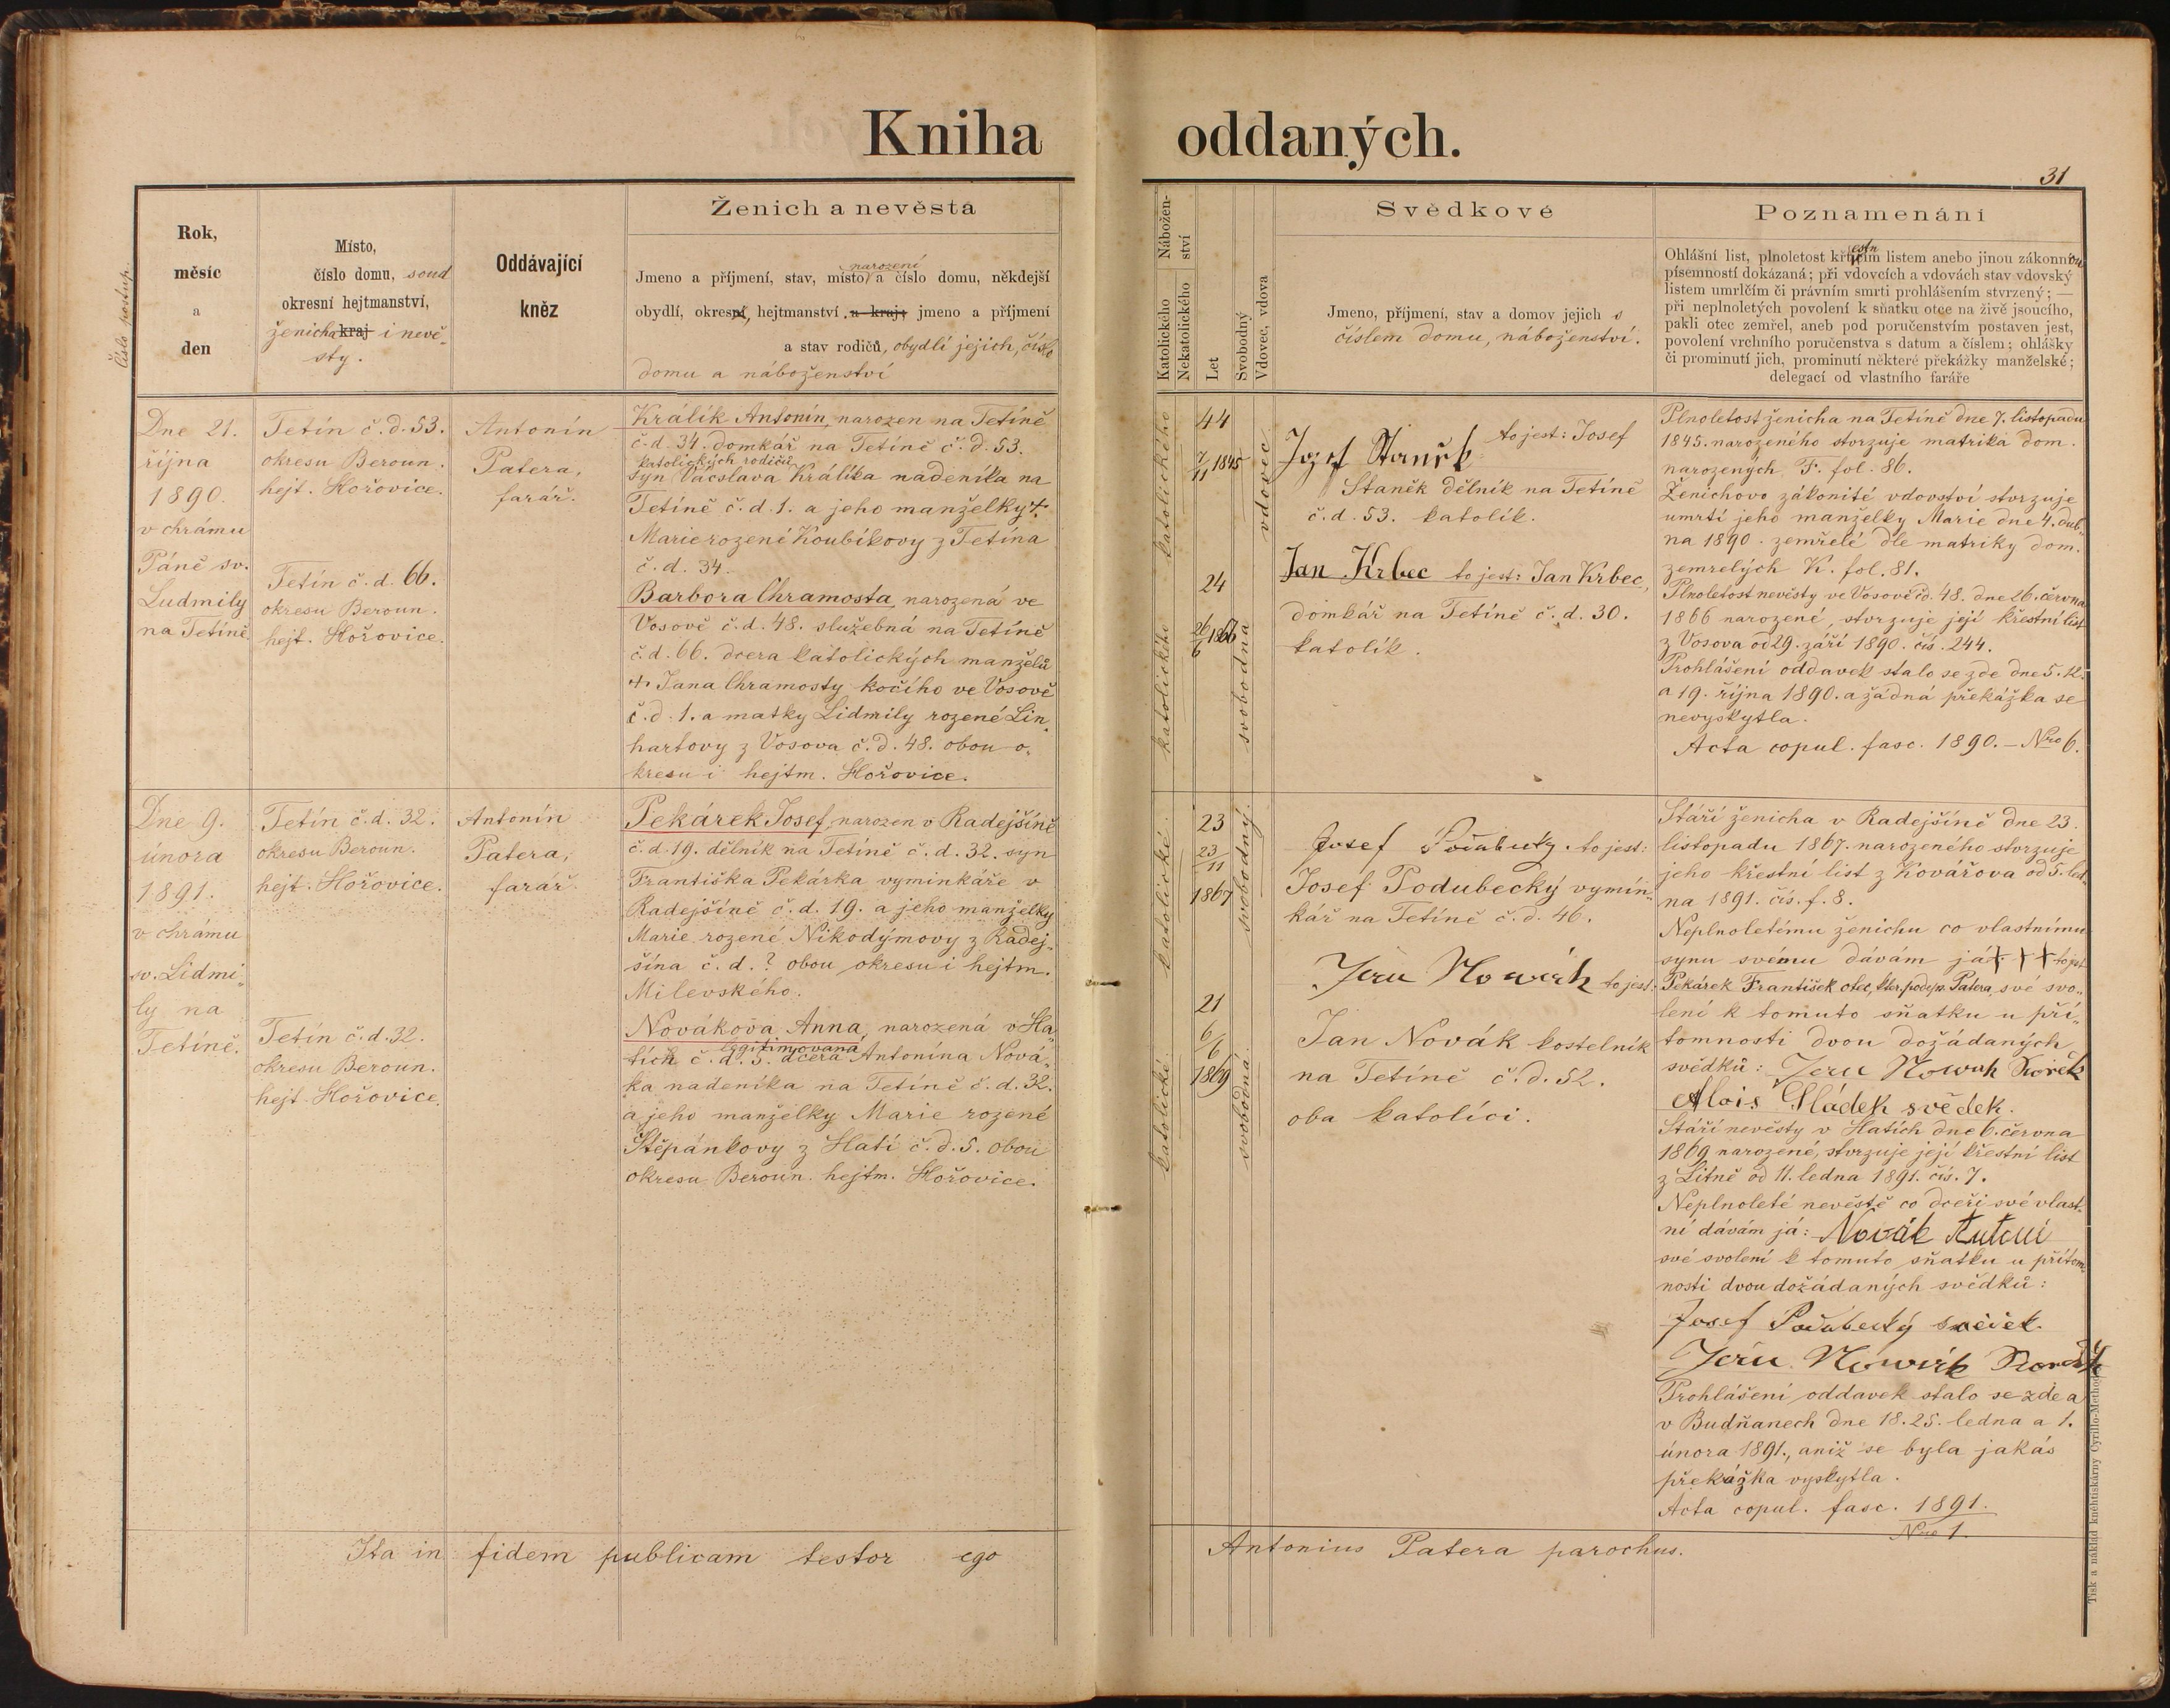 Kniha oddaných.
31
Číslo postup.
Rok,
měsíc
a
den
Místo,
číslo domu, soud
okresní hejtmanství,
ženicha kraj i nevě-
sty.
Oddávající
kněz
Ženich a nevěsta
narození
Jmeno a příjmení, stav, místo a číslo domu, někdejší
obydlí, okresní, hejtmanství a kraj; jmeno a příjmení
a stav rodičů, obydlí jejich, číslo
domu a náboženství
Nábožen-
ství
Katolického
Nekatolického
Let
Svobodný
Vdovec, vdova
Svědkové
Jmeno, příjmení, stav a domov jejich s
číslem domu, náboženství.
Poznamenání
Ohlášní list, plnoletost křestním listem anebo jinou zákonnou
písemností dokázaná; při vdovcích a vdovách stav vdovský
listem umrlčím či právním smrti prohlášením stvrzený; —
při neplnoletých povolení k sňatku otce na živě jsoucího,
pakli otec zemřel, aneb pod poručenstvím postaven jest,
povolení vrchního poručenstva s datum a číslem; ohlášky
či prominutí jich, prominutí některé překážky manželské;
delegací od vlastního faráře
Dne 21.
října
1890.
v chrámu
Páně sv.
Ludmily
na Tetíně.
Tetín č.d. 53.
okresu Beroun.
hejt. Hořovice.
Tetín č.d. 66.
okresu Beroun.
hejt. Hořovice.
Antonín
Patera,
farář.
Králík Antonín, narozen na Tetíně
č.d. 34. domkář na Tetíně č.d. 53.
katolických rodičů
syn Vácslava Králíka nádeníka na
Tetíně č.d. 1. a jeho manželky †
Marie rozené Koubíkovy z Tetína
č.d. 34.
Barbora Chramosta, narozená ve
Vosově č.d. 48. služebná na Tetíně
č.d. 66. dcera katolických manželů
† Jana Chramosty kočího ve Vosově
č.d. 1. a matky Lidmily rozené Lin-
hartovy z Vosova č.d. 48. obou o-
kresu i hejtm. Hořovice.
katolického
44
7/11 1845
vdovec
katolického
24
26/6 1866
svobodná
Jozef Staněk to jest: Josef
Staněk dělník na Tetíně
č.d. 53. katolík.
Jan Krbec to jest: Jan Krbec,
domkář na Tetíně č.d. 30.
katolík.
Plnoletost ženicha na Tetíně dne 7. listopadu
1845. narozeného stvrzuje matrika dom.
narozených F. fol. 86.
Ženichovo zákonité vdovství stvrzuje
umrtí jeho manželky Marie dne 4. dub-
na 1890. zemřelé dle matriky dom.
zemrelých K. fol. 81.
Plnoletost nevěsty ve Vosově čd. 48. dne 26. června
1866 narozené, stvrzuje její křestní list
z Vosova od 29. září 1890. čís. 244.
Prohlášení oddavek stalo se zde dne 5. 12.
a 19. října 1890. a žádná překážka se
nevyskytla.
Acta copul. fasc. 1890. – Nro 6.
Dne 9.
února
1891.
v chrámu
sv. Lidmi-
ly na
Tetíně.
Tetín č.d. 32.
okresu Beroun.
hejt. Hořovice.
Tetín č.d. 32.
okresu Beroun.
hejt. Hořovice.
Antonín
Patera,
farář.
Pekárek Josef, narozen v Radejšíně
č.d. 19. dělník na Tetíně č.d. 32. syn
Františka Pekárka vyminkáře v
Radejšíně č.d. 19. a jeho manželky
Marie rozené Nikodýmovy z Radej-
šína č.d. ? obou okresu i hejtm.
Milevského.
Nováková Anna, narozená v Ha-
legitimovaná
tích č.d. 5. dcera Antonína Nová-
ka nadeníka na Tetíně č.d. 32.
a jeho manželky Marie rozené
Štěpánkovy z Hatí č.d. 5. obou
okresu Beroun. hejtm. Hořovice.
katolické
23
23/11
1867
svobodný
katolické
21
6/6
1869
svobodná
Josef Podubecky. to jest:
Josef Podubecký vymín-
kář na Tetíně č.d. 46.
Jan Nowák to jest:
Jan Novák kostelník
na Tetíně č.d. 52.
oba katolíci.
Stáří ženicha v Radejšíně dne 23.
listopadu 1867. narozeného stvrzuje
jeho křestní list z Kovářova od 5. led-
na 1891. čís. f. 8.
Neplnoletímu ženichu co vlastnímu
synu svému dávám já: + + + to jest
Pekárek František otec, kter. podeps. Patera, své svo-
lení k tomuto sňatku u pří-
tomnosti dvou dožádaných
svědků: Jan Nowak
Alois Sládek svědek.
Stáří nevěsty v Hatích dne 6. června
1869 narozené, stvrzuje její křestní list
z Litně od 11. ledna 1891. čís. 7.
Neplnoleté nevěstě co dceři své vlast-
ní dávám já: Novák Antoní
své svolení k tomuto sňatku u přítom-
nosti dvou dožádaných svědků:
Josef Podubecký
Jan Nowák
Prohlášení oddavek stalo se zde a
v Budňanech dne 18. 25. ledna a 1.
února 1891., aniž se byla jakás
překážka vyskytla.
Acta copul. fasc. 1891.
Nro 1.
Ita in fidem publicam testor ego Antonius Patera parochus.
Tisk a náklad knihtiskárny Cyrillo-Method